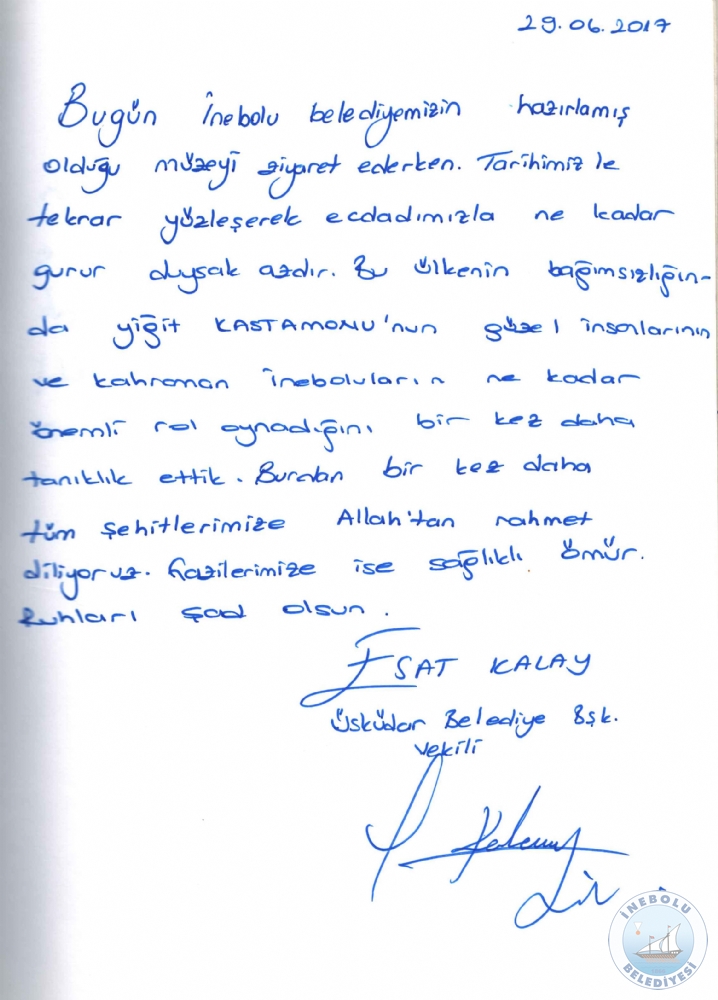 29.06.2017
Bugün İnebolu belediyemizin hazırlamış
olduğu müzeyi ziyaret ederken. Tarihimizle
tekrar yüzleşerek ecdadımızla ne kadar
gurur duysak azdır. Bu ülkenin bağımsızlığın-
da yiğit KASTAMONU'nun güzel insanlarının
ve kahraman İneboluların ne kadar
önemli rol oynadığını bir kez daha
tanıklık ettik. Burdan bir kez daha
tüm şehitlerimize Allah'tan rahmet
diliyoruz. Gazilerimize ise sağlıklı ömür.
Ruhları şad olsun.
ESAT KALAY
Üsküdar Belediye Bşk.
vekili
İNEBOLU
BELEDİYESİ